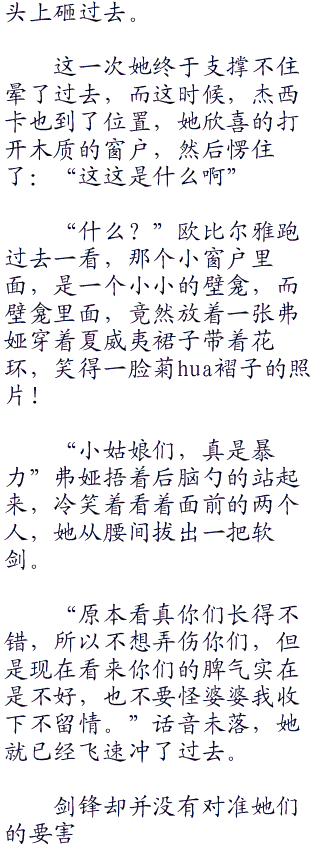 头上砸过去。
这一次她终于支撑不住
晕了过去，而这时候，杰西
卡也到了位置，她欣喜的打
开木质的窗户，然后愣住
了：“这这是什么啊”
“什么？”欧比尔雅跑
过去一看，那个小窗户里
面，是一个小小的壁龛，而
壁龛里面，竟然放着一张弗
娅穿着夏威夷裙子带着花
环，笑得一脸菊hua褶子的照
片！
“小姑娘们，真是暴
力”弗娅捂着后脑勺的站起
来，冷笑着看着面前的两个
人，她从腰间拔出一把软
剑。
“原本看真你们长得不
错，所以不想弄伤你们，但
是现在看来你们的脾气实在
是不好，也不要怪婆婆我收
下不留情。”话音未落，她
就已经飞速冲了过去。
剑锋却并没有对准她们
的要害